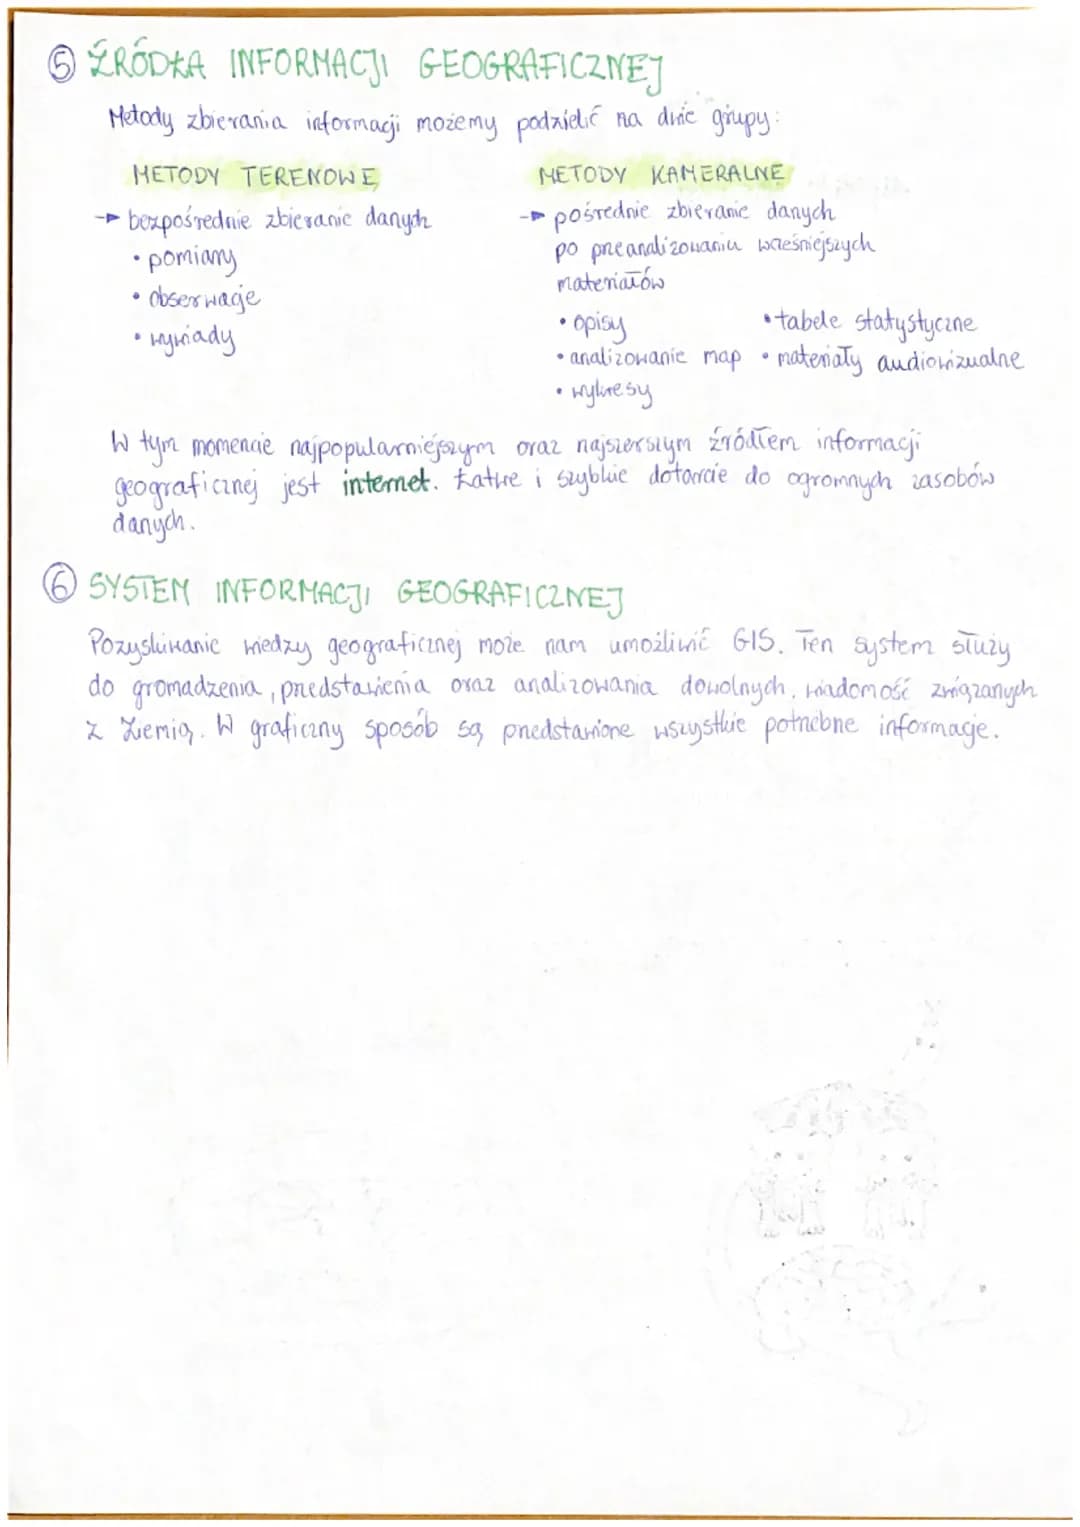 ⑤ ŹRÓDŁA INFORMACJI GEOGRAFICZNEJ
Metody zbierania informacji możemy podzielić na dwie grupy:
METODY TERENOWE
→ bezpośrednie zbieranie danych
• pomiary
• obserwacje
• wywiady
METODY KAMERALNE
→ pośrednie zbieranie danych
po przeanalizowaniu wcześniejszych
materiałów
• opisy
• analizowanie map
• wykresy
• tabele statystyczne
• materiały audiowizualne
W tym momencie najpopularniejszym oraz najszerszym źródłem informacji
geograficznej jest internet. Łatwe i szybkie dotarcie do ogromnych zasobów
danych.
⑥ SYSTEM INFORMACJI GEOGRAFICZNEJ
Pozyskiwanie wiedzy geograficznej może nam umożliwić GIS. Ten system służy
do gromadzenia, przedstawienia oraz analizowania dowolnych, wiadomość związanych
z Ziemią. W graficzny sposób są przedstawione wszystkie potrzebne informacje.